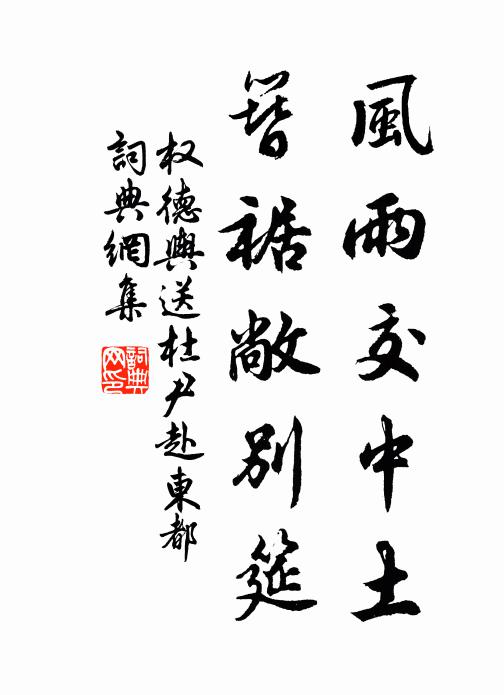 風雨交中土
簪裾敞別筵
权德輿送杜尹赴東都
詞典網集
詞典網印